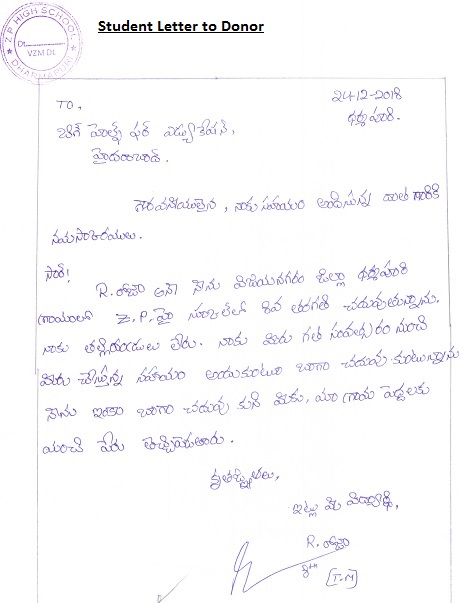 Student Letter to Donor
Z.P. HIGH SCHOOL
Dt.
VZM Dt.
DHARMAPURI
TO,
24-12-2018
ధర్మపురి.
బిగ్ హెల్ప్ ఫర్ ఎడ్యుకేషన్,
హైదరాబాద్.
గౌరవనీయులైన, నాకు సహాయం అందిస్తున్న దాత గారికి
నమస్కారములు.
సార్!
R. రోజా అనే నేను విజయనగరం జిల్లా ధర్మపురి
గ్రామంలో Z.P. హై స్కూల్‌లో 8వ తరగతి చదువుతున్నాను.
నాకు తల్లిదండ్రులు లేరు. నాకు మీరు గత సంవత్సరం నుంచి
మీరు చేస్తున్న సహాయం అందుకుంటూ బాగా చదువుకుంటున్నాను
నేను ఇంకా బాగా చదువు కుని మీకు, మా గ్రామ పెద్దలకు
మంచి పేరు
కృతజ్ఞతలు,
ఇట్లు మీ విద్యార్థి,
R. రోజా
8th [T.M]